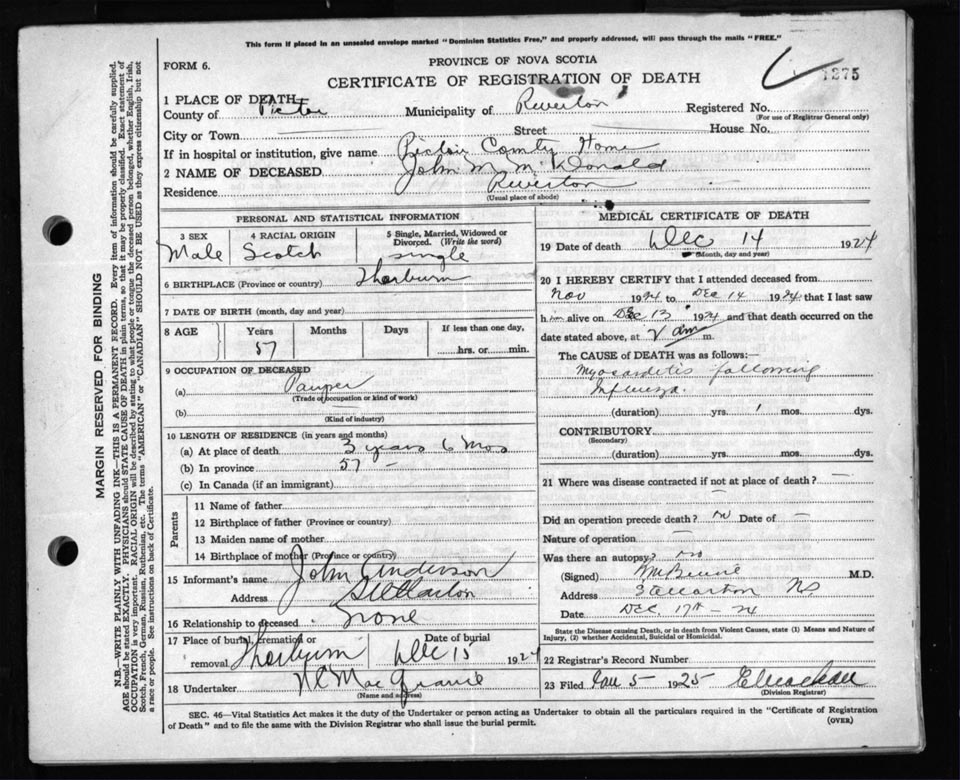 This form if placed in an unsealed envelope marked "Dominion Statistics Free," and properly addressed, will pass through the mails "FREE."
FORM 6.
PROVINCE OF NOVA SCOTIA
CERTIFICATE OF REGISTRATION OF DEATH
1275
1 PLACE OF DEATH
County of Pictou Municipality of Riverton Registered No.
(For use of Registrar General only)
City or Town Street House No.
If in hospital or institution, give name Pictou County Home
2 NAME OF DECEASED John M McDonald
Residence Riverton
(Usual place of abode)
PERSONAL AND STATISTICAL INFORMATION
3 SEX 4 RACIAL ORIGIN 5 Single, Married, Widowed or Divorced. (Write the word)
Male Scotch single
6 BIRTHPLACE (Province or country) Thorburn
7 DATE OF BIRTH (month, day and year)
8 AGE Years Months Days If less than one day,
57 hrs. or min.
9 OCCUPATION OF DECEASED
(a) Pauper
(Trade or occupation or kind of work)
(b) —
(Kind of industry)
10 LENGTH OF RESIDENCE (in years and months)
(a) At place of death 3 years 6 Mos
(b) In province 57 —
(c) In Canada (if an immigrant)
Parents
11 Name of father
12 Birthplace of father (Province or country)
13 Maiden name of mother
14 Birthplace of mother (Province or country)
15 Informant's name John Anderson
Address Stellarton
16 Relationship to deceased none
17 Place of burial, cremation or removal Thorburn Date of burial Dec 15 1924
18 Undertaker
(Name and address)
MEDICAL CERTIFICATE OF DEATH
19 Date of death Dec 14 1924
(Month, day and year)
20 I HEREBY CERTIFY that I attended deceased from
Nov 1924 to Dec 14 1924 that I last saw
h im alive on Dec 13 1924 and that death occurred on the
date stated above, at 2 am m.
The CAUSE OF DEATH was as follows:—
Myocarditis following
Influenza.
(duration) yrs. 1 mos. dys.
CONTRIBUTORY
(Secondary)
(duration) yrs. mos. dys.
21 Where was disease contracted if not at place of death? —
Did an operation precede death? no Date of —
Nature of operation —
Was there an autopsy? no
(Signed) M.D.
Address Stellarton NS
Date Dec. 17th - 24
State the Disease causing Death, or in death from Violent Causes, state (1) Means and Nature of
Injury, (2) whether Accidental, Suicidal or Homicidal.
22 Registrar's Record Number
23 Filed Jan 5 1925
(Division Registrar)
SEC. 46—Vital Statistics Act makes it the duty of the Undertaker or person acting as Undertaker to obtain all the particulars required in the "Certificate of Registration
of Death" and to file the same with the Division Registrar who shall issue the burial permit.
(OVER)
MARGIN RESERVED FOR BINDING
N.B.—WRITE PLAINLY WITH UNFADING INK—THIS IS A PERMANENT RECORD. Every item of information should be carefully supplied.
AGE should be stated EXACTLY. PHYSICIANS should STATE CAUSE OF DEATH in plain terms, so that it may be properly classified. Exact statement of
OCCUPATION is very important. RACIAL ORIGIN will be described by stating to what people or tongue the deceased person belonged, whether English, Irish,
Scotch, French, German, Russian, Ruthenian, etc. The terms "AMERICAN" or "CANADIAN" SHOULD NOT BE USED as they express citizenship but not
a race or people. See instructions on back of Certificate.